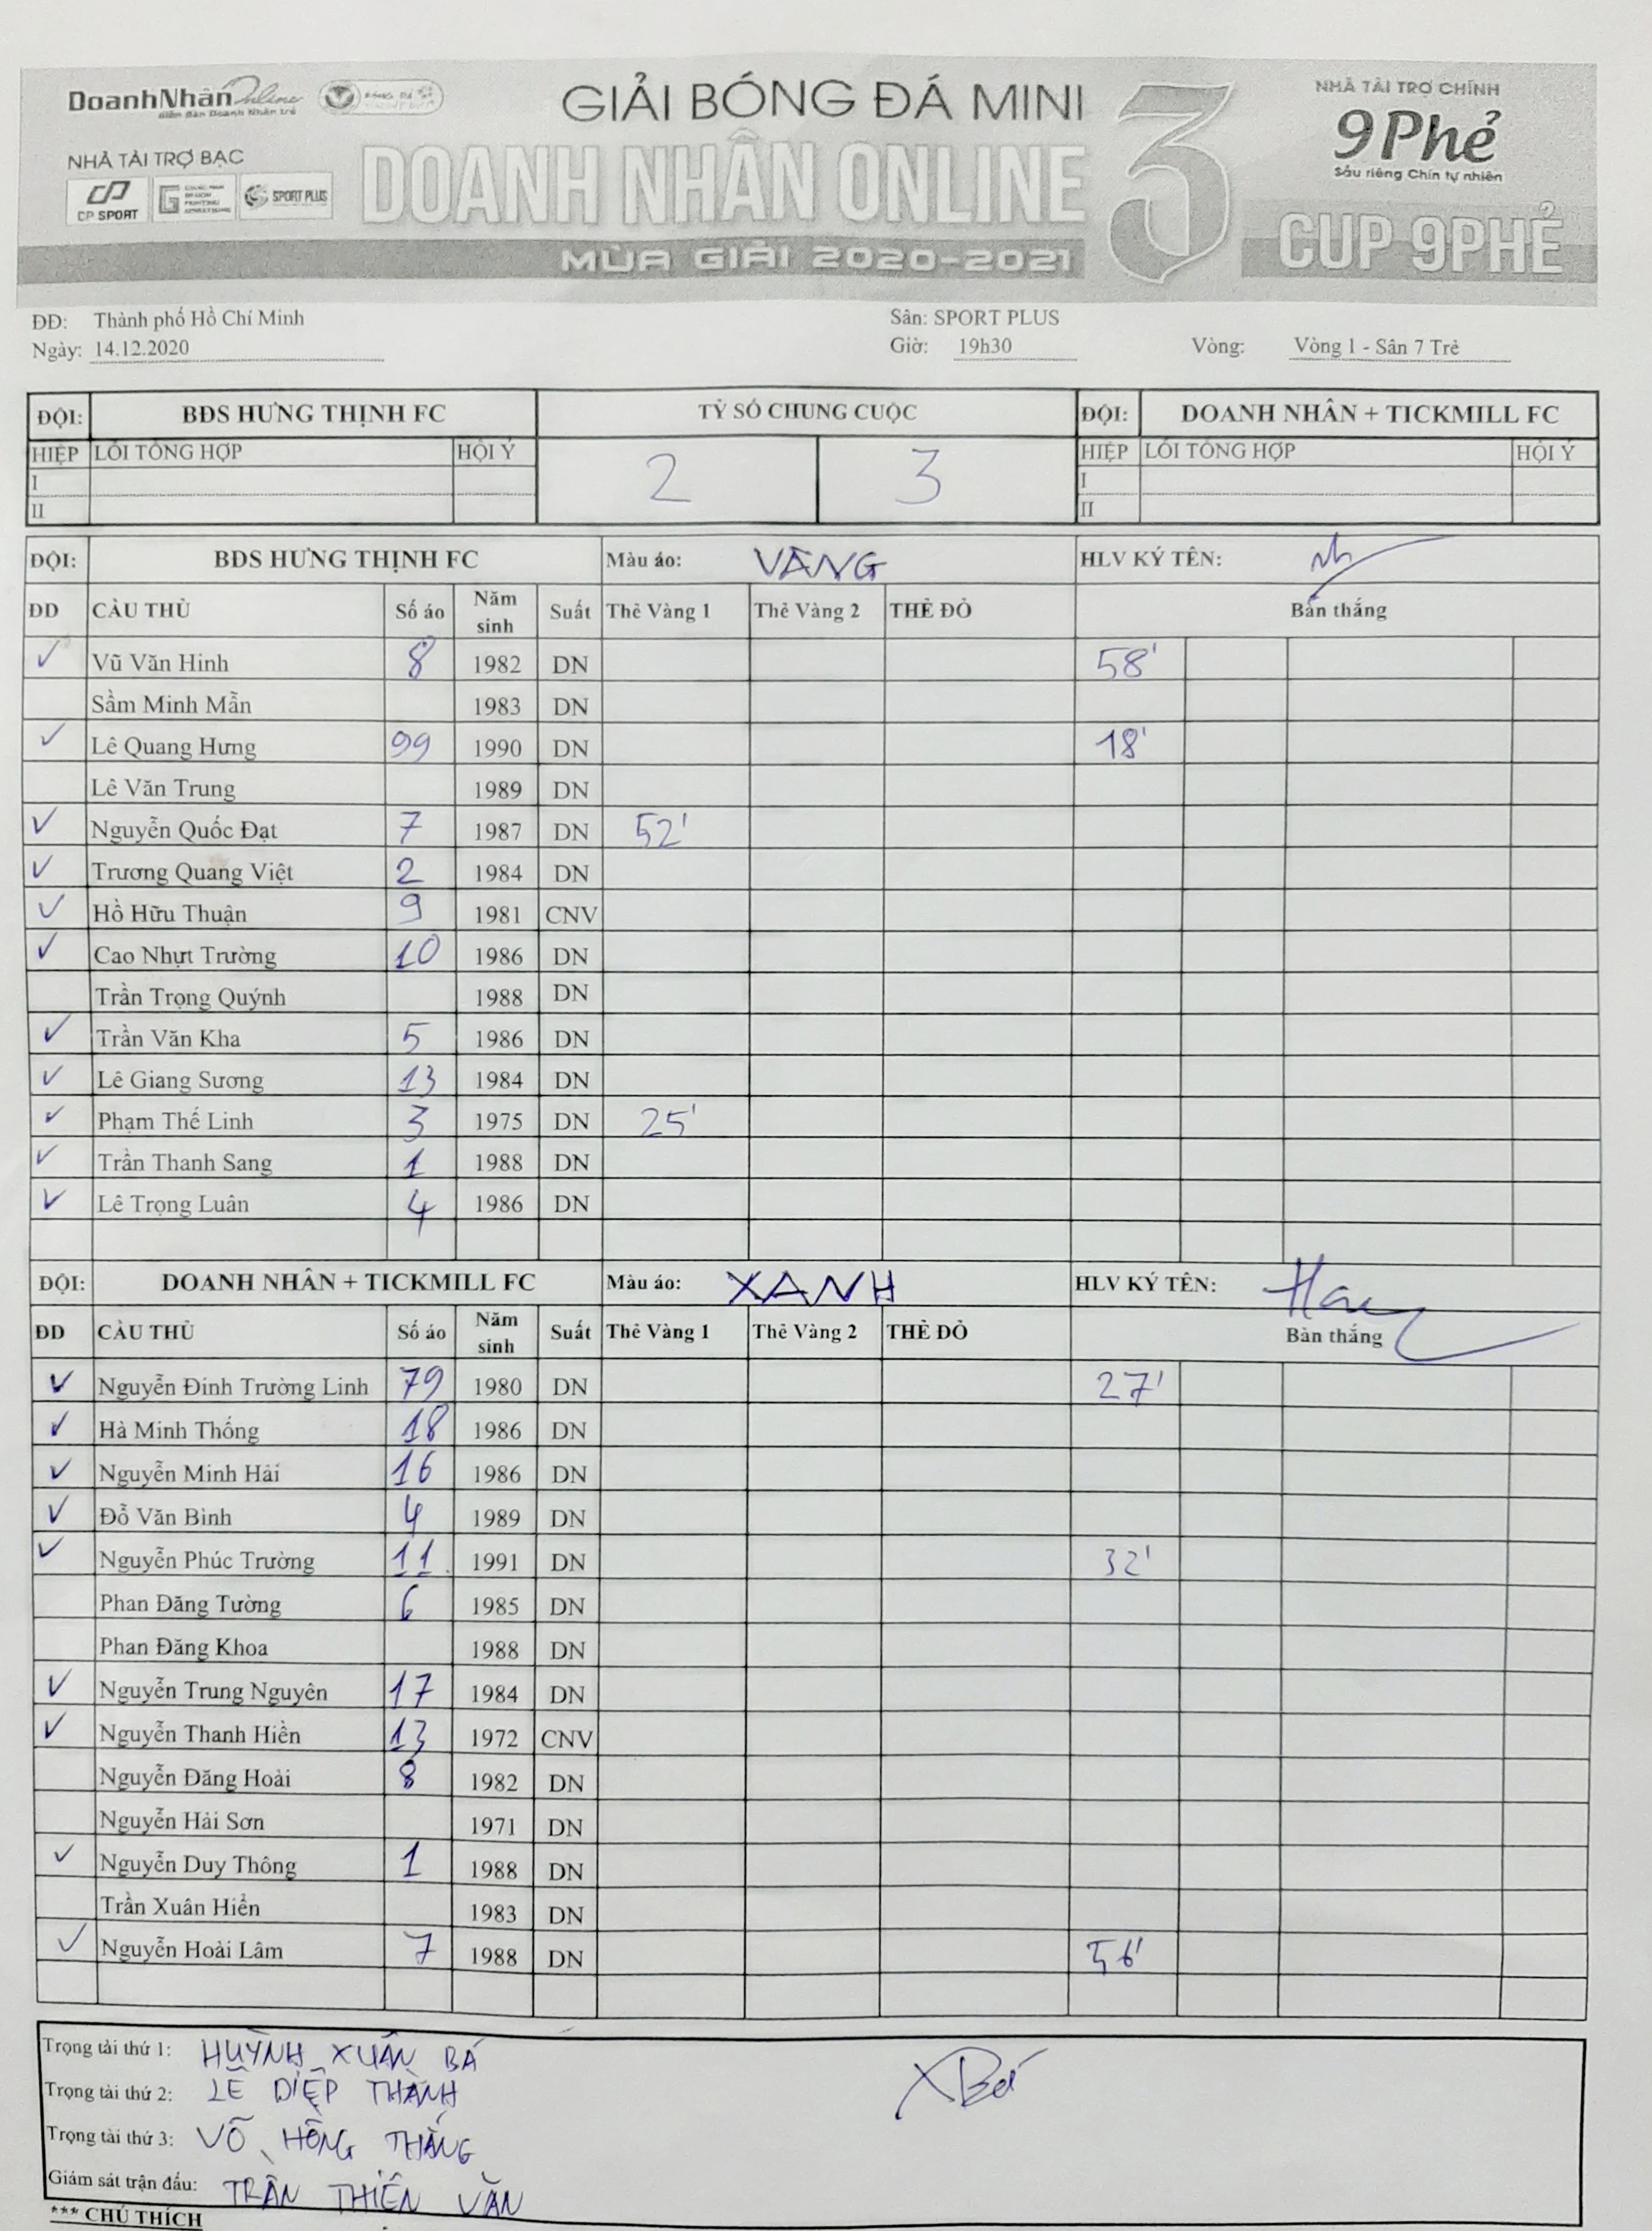 DoanhNhânOnline
diễn đàn Doanh Nhân trẻ
GIẢI BÓNG ĐÁ MINI
DOANH NHÂN ONLINE
MÙA GIẢI 2020-2021
3
NHÀ TÀI TRỢ CHÍNH
9Phẻ
Sầu riêng Chín tự nhiên
CUP 9PHẺ
NHÀ TÀI TRỢ BẠC
CP SPORT
SPORT PLUS
ĐĐ: Thành phố Hồ Chí Minh Sân: SPORT PLUS
Ngày: 14.12.2020 Giờ: 19h30 Vòng: Vòng 1 - Sân 7 Trẻ
ĐỘI: BĐS HƯNG THỊNH FC TỶ SỐ CHUNG CUỘC ĐỘI: DOANH NHÂN + TICKMILL FC
HIỆP LỖI TỔNG HỢP HỘI Ý 2 3 HIỆP LỖI TỔNG HỢP HỘI Ý
I I
II II
ĐỘI: BĐS HƯNG THỊNH FC Màu áo: VÀNG HLV KÝ TÊN:
ĐD CẦU THỦ Số áo Năm sinh Suất Thẻ Vàng 1 Thẻ Vàng 2 THẺ ĐỎ Bàn thắng
✓ Vũ Văn Hinh 8 1982 DN 58'
Sầm Minh Mẫn 1983 DN
✓ Lê Quang Hưng 99 1990 DN 18'
Lê Văn Trung 1989 DN
✓ Nguyễn Quốc Đạt 7 1987 DN 52'
✓ Trương Quang Việt 2 1984 DN
✓ Hồ Hữu Thuận 9 1981 CNV
✓ Cao Nhựt Trường 10 1986 DN
Trần Trọng Quýnh 1988 DN
✓ Trần Văn Kha 5 1986 DN
✓ Lê Giang Sương 13 1984 DN
✓ Phạm Thế Linh 3 1975 DN 25'
✓ Trần Thanh Sang 1 1988 DN
✓ Lê Trọng Luân 4 1986 DN
ĐỘI: DOANH NHÂN + TICKMILL FC Màu áo: XANH HLV KÝ TÊN:
ĐD CẦU THỦ Số áo Năm sinh Suất Thẻ Vàng 1 Thẻ Vàng 2 THẺ ĐỎ Bàn thắng
✓ Nguyễn Đính Trường Linh 79 1980 DN 27'
✓ Hà Minh Thống 18 1986 DN
✓ Nguyễn Minh Hải 16 1986 DN
✓ Đỗ Văn Bình 4 1989 DN
✓ Nguyễn Phúc Trường 11 1991 DN 32'
Phan Đăng Tường 6 1985 DN
Phan Đăng Khoa 1988 DN
✓ Nguyễn Trung Nguyên 17 1984 DN
✓ Nguyễn Thanh Hiền 13 1972 CNV
Nguyễn Đăng Hoài 8 1982 DN
Nguyễn Hải Sơn 1971 DN
✓ Nguyễn Duy Thông 1 1988 DN
Trần Xuân Hiển 1983 DN
✓ Nguyễn Hoài Lâm 7 1988 DN 56'
Trọng tài thứ 1: HUỲNH XUÂN BÁ
Trọng tài thứ 2: LÊ DIỆP THÀNH XBá
Trọng tài thứ 3: VÕ HỒNG THẮNG
Giám sát trận đấu: TRẦN THIÊN VĂN
*** CHÚ THÍCH